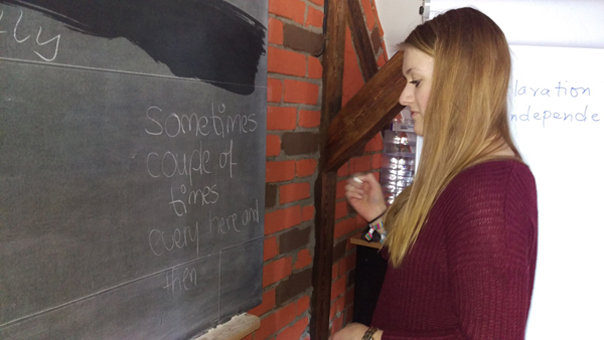 lly
Sometimes
couple of
times
every here and
then
laration
ndepende